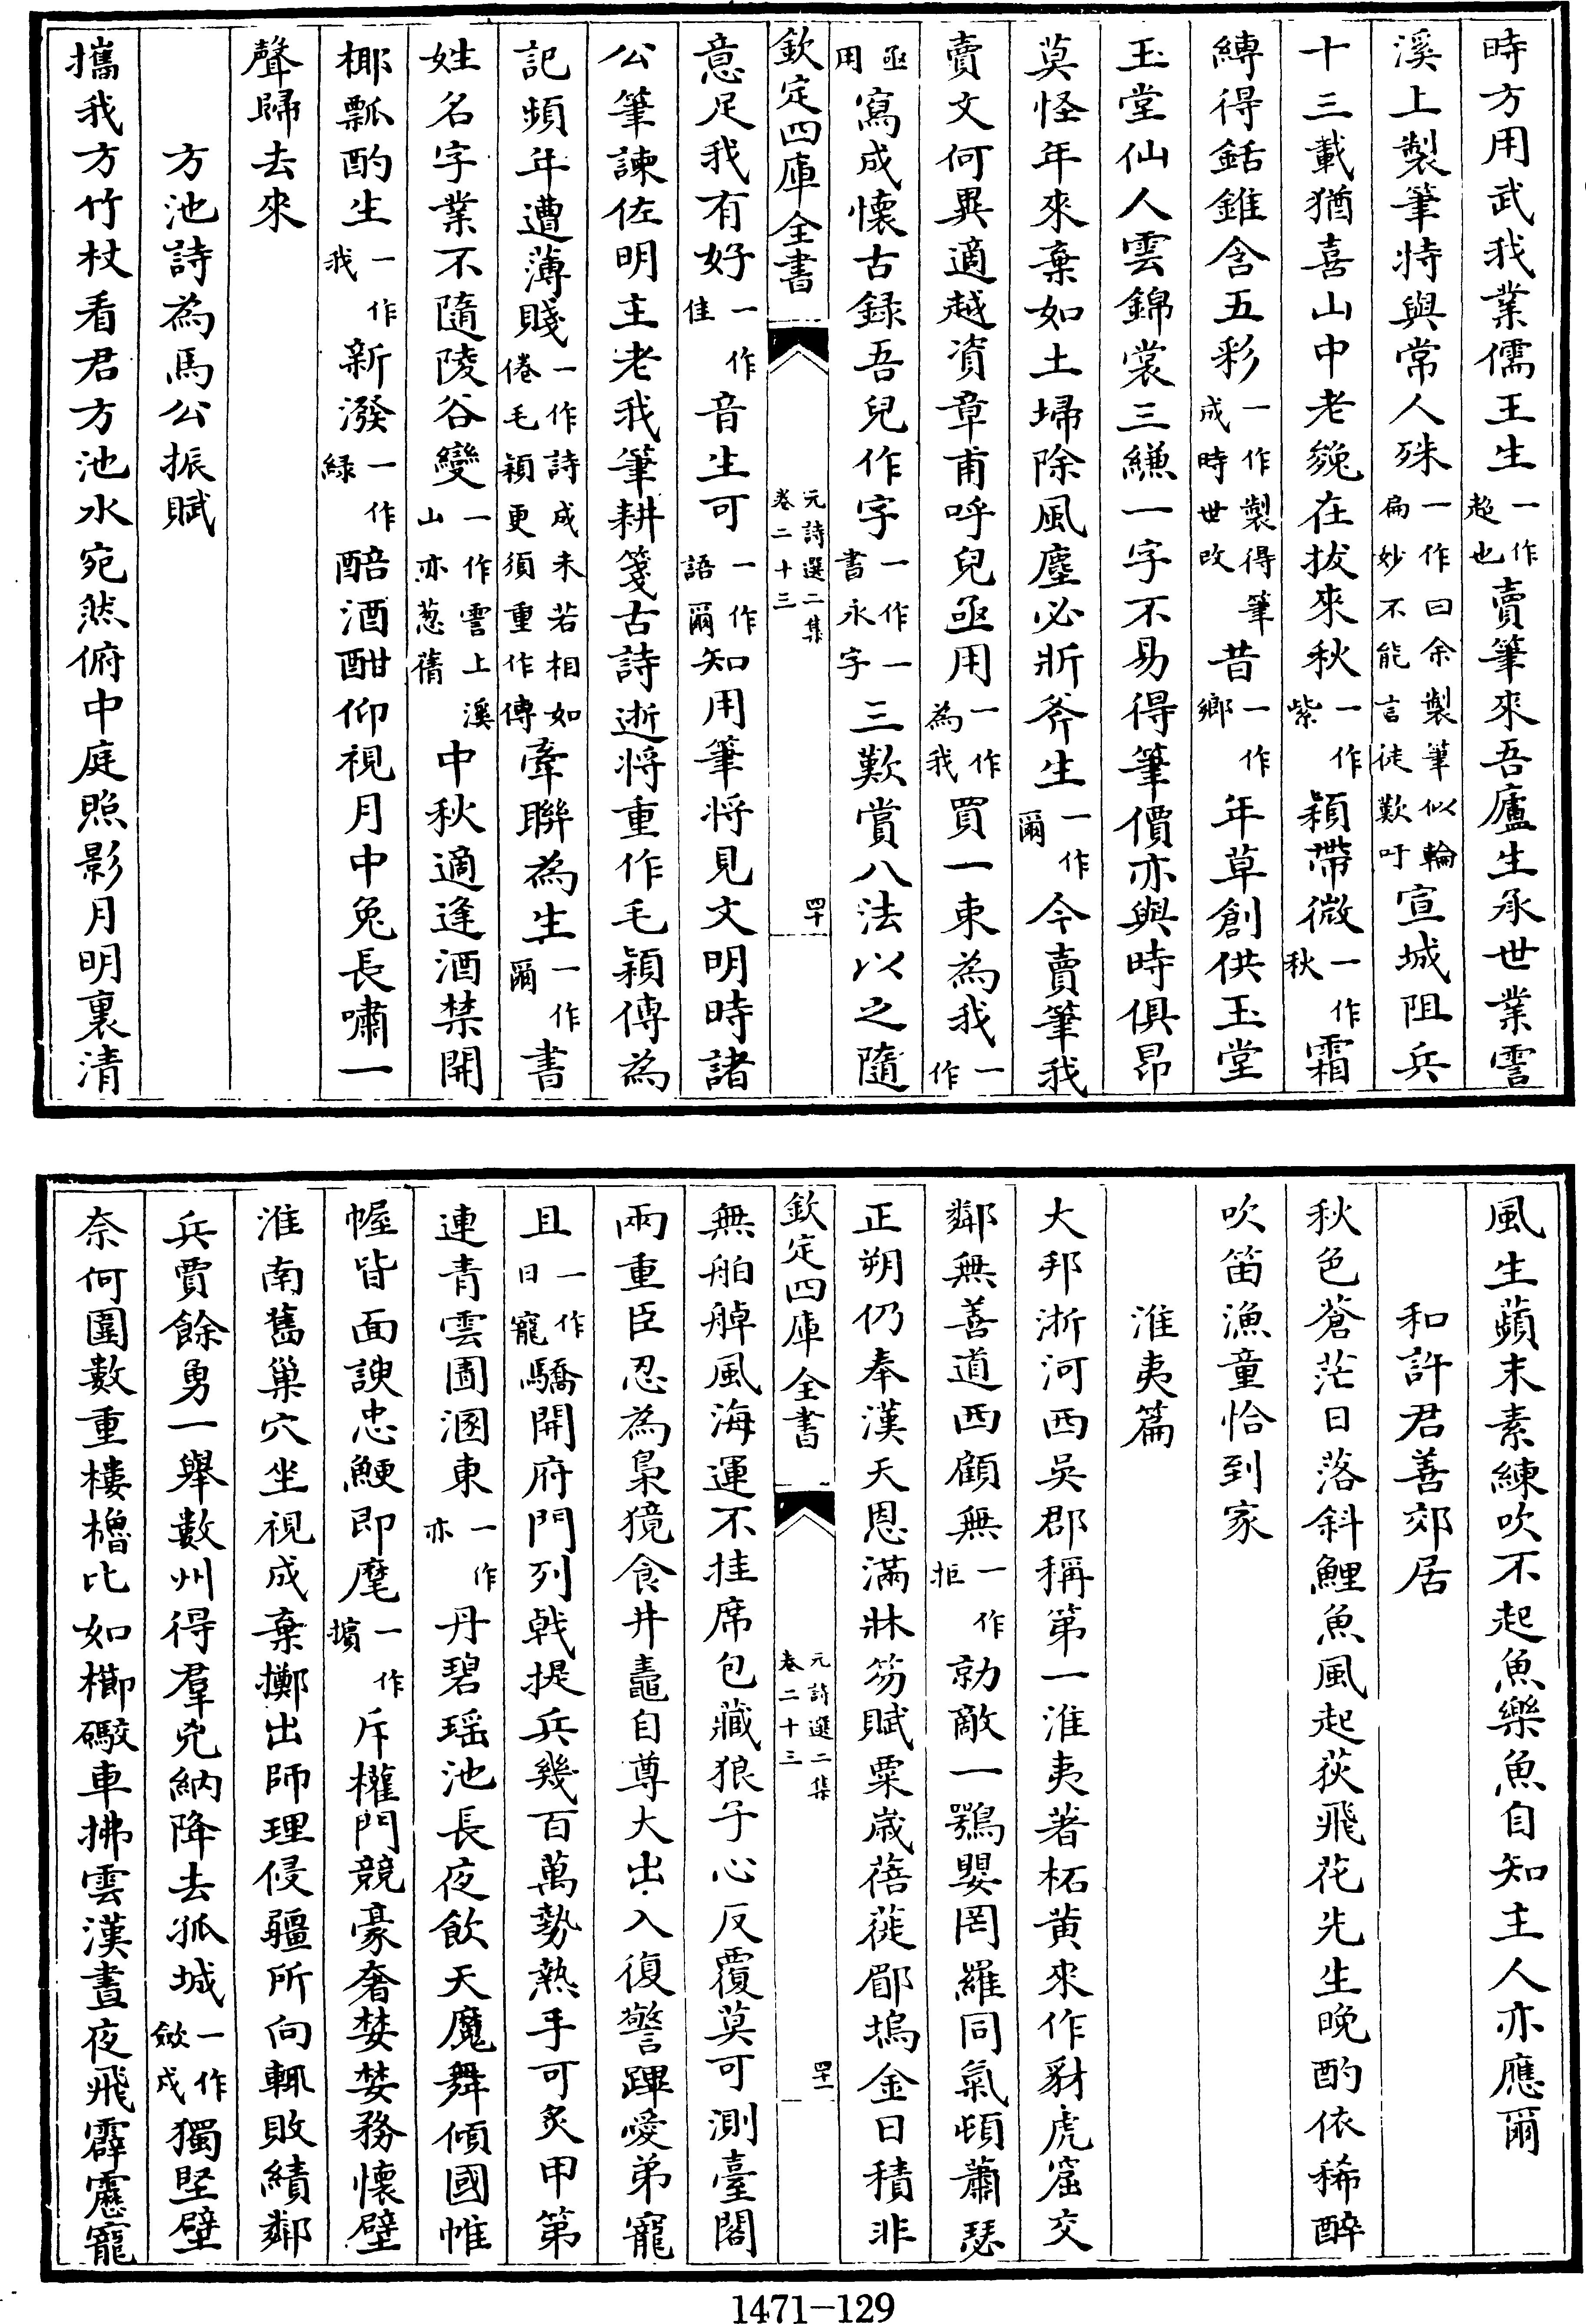 時方用武我業儒王生一作趍也賣筆來吾廬生承世業霅
溪上製筆特與常人殊一作曰余製筆似輪扁妙不能言徒歎吁宣城阻兵
十三載猶喜山中老㲋在拔來秋一作紫穎帶微一作秋霜
縛得銛錐含五彩一作製得筆成時世改昔一作鄉年草創供玉堂
玉堂仙人雲錦裳三縑一字不易得筆價亦與時俱昂
莫怪年來棄如土埽除風塵必斨斧生一作爾今賣筆我
賣文何異適越資章甫呼兒亟用一作為我買一束為我一作
亟用寫成懷古錄吾兒作字一作一書永字三歎賞八法以之隨
欽定四庫全書
元詩選二集
卷二十三
四十
意足我有好一作佳音生可一作語爾知用筆將見文明時諸
公筆諫佐明主老我筆耕箋古詩逝將重作毛穎傳為
記頻年遭薄賤一作詩成未若相如倦毛穎更須重作傳牽聯為生一作爾書
姓名字業不隨陵谷變一作霅上溪山亦葱蒨中秋適逢酒禁開
椰瓢酌生一作我新潑一作綠醅酒酣仰視月中兔長嘯一
聲歸去來
方池詩為馬公振賦
攜我方竹杖看君方池水宛然俯中庭照影月明裏清
風生蘋末素練吹不起魚樂魚自知主人亦應爾
和許君善郊居
秋色蒼茫日落斜鯉魚風起荻飛花先生晚酌依稀醉
吹笛漁童恰到家
淮夷篇
大邦浙河西吳郡稱第一淮夷著柘黄來作豺虎窟交
鄰無善道西顧無一作拒勍敵一鶚嬰罔羅同氣頓蕭瑟
正朔仍奉漢天恩滿牀笏賦粟歲蓓蓰郿塢金日積非
欽定四庫全書
元詩選二集
卷二十三
四十一
無舶䑲風海運不挂席包藏狼子心反覆莫可測臺閣
兩重臣忍為梟獍食井䵷自尊大出入復警蹕愛弟寵
且一作日寵驕開府門列㦸提兵幾百萬勢熱手可炙甲第
連青雲圊溷東一作亦丹碧瑶池長夜飲天魔舞傾國帷
幄皆面諛忠鯁即麾一作擯斥權門競豪奢婪婪務懷璧
淮南舊巢穴坐視成棄擲出師理侵疆所向輒敗績鄰
兵賈餘勇一舉數州得羣兇納降去孤城一作斂戍獨堅壁
奈何圍數重樓櫓比如櫛礮車拂雲漢晝夜飛霹靂寵
1471—129